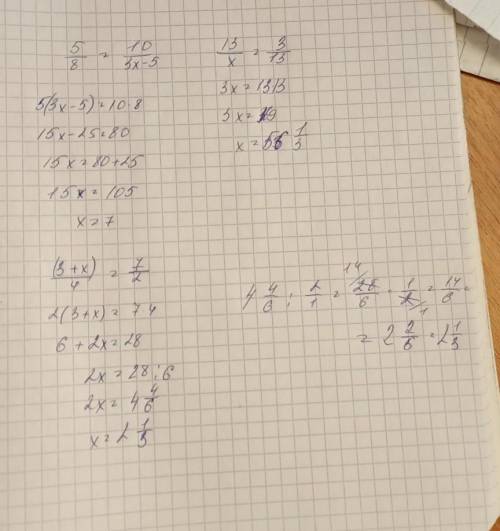 5/8 = 10/3x-5
5(3x-5)=10·8
15x-25=80
15x=80+25
15x=105
x=7
13/x = 3/13
3x=13·13
x= 1/3
(3+x)/4 = 7/2
2(3+x)=7·4
6+2x=28
2x=28:6
2x=4 4/6
x=2 1/3
4 4/6 : 2/1 = 28/6 · 1/2 = 14/6 =
14
1
= 2 2/6 = 2 1/3